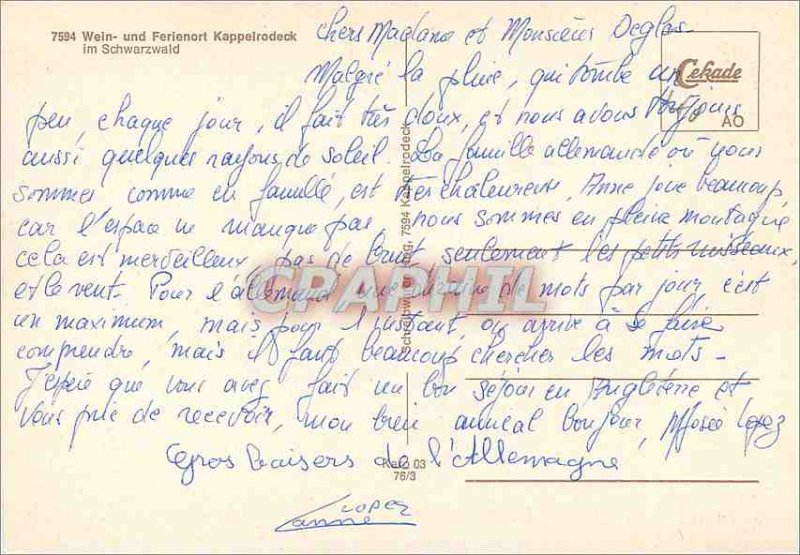 7594 Wein- und Ferienort Kappelrodeck
im Schwarzwald
Cekade
AO
chers Madame et Monsieur Deglas
Malgré la pluie, qui tombe un
peu, chaque jour, il fait très doux, et nous avons toujours
aussi quelques rayons de soleil. La famille allemande où nous
sommes comme en famille, est très chaleureuse, Anne joue beaucoup
car l'espace ne manque pas, nous sommes en pleine montagne
cela est merveilleux, pas de bruit seulement les petits ruisseaux,
et le vent. Pour l'allemand une dizaine de mots par jour c'est
un maximum, mais pour l'instant, on arrive à se faire
comprendre, mais il faut beaucoup chercher les mots -
J'espère que vous avez fait un bon séjour en Angleterre et
vous prie de recevoir, mon bien amical bonjour, Lopez
Gros baisers de l'Allemagne
LOPEZ
Anne
7594 Kappelrodeck
Karo 03
76/3
CPAPHIL